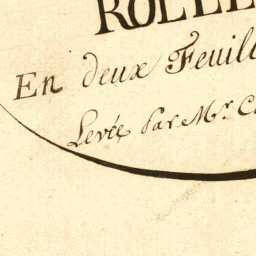 ROLLE
En deux Feuill
Levée Par Mr. C